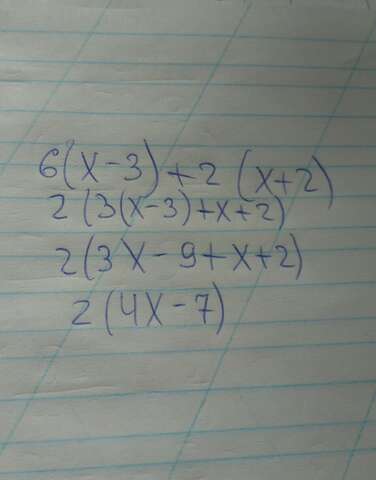 6(x-3)+2(x+2)
2(3(x-3)+x+2)
2(3x-9+x+2)
2(4x-7)